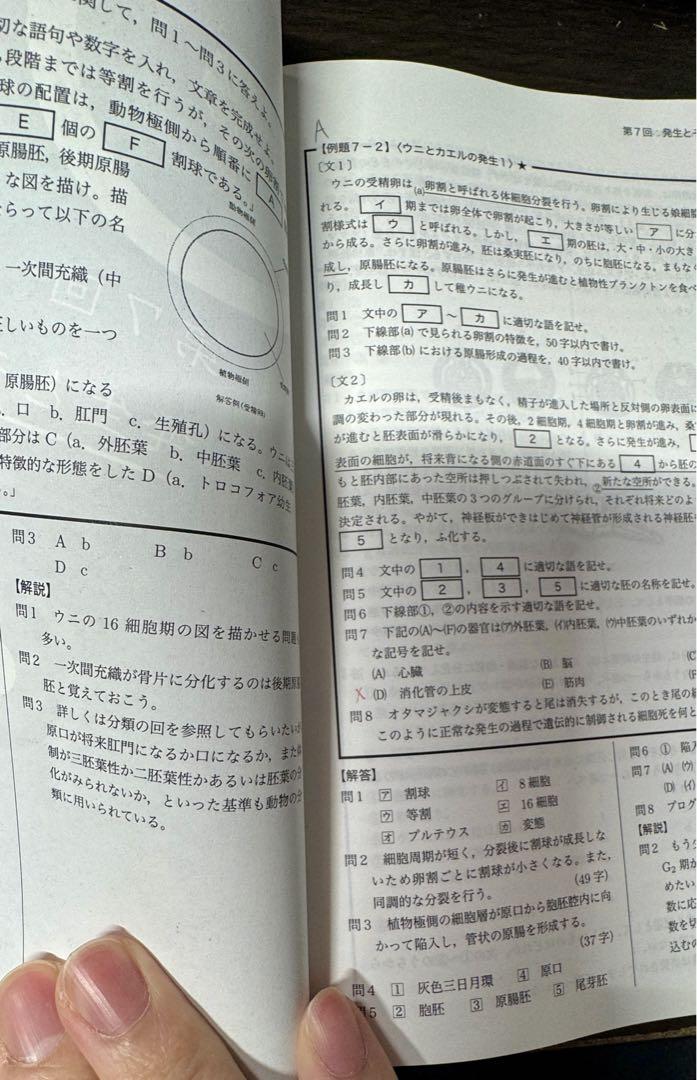 関して，問1～問3に答えよ。
切な語句や数字を入れ，文章を完成せよ。
段階までは等割を行うが，その次の卵割
球の配置は，動物極側から順番に A
E 個の F 割球である。」
原腸胚，後期原腸
な図を描け。描
ならって以下の名
動物極側
一次間充織（中
正しいものを一つ
植物極側
解答例(受精卵)
原腸胚）になる
．口 b．肛門 c．生殖孔）になる。ウニは
部分はC（a．外胚葉 b．中胚葉 c．内胚葉
特徴的な形態をしたD（a．トロコフォア幼生
。」
問3 A b B b C c
D c
【解説】
問1 ウニの16細胞期の図を描かせる問題
多い。
問2 一次間充織が骨片に分化するのは後期原
胚と覚えておこう。
問3 詳しくは分類の回を参照してもらいたいが
原口が将来肛門になるか口になるか，また
制が三胚葉性か二胚葉性かあるいは胚葉の分
化がみられないか，といった基準も動物の分
類に用いられている。
A
第7回 発生と
【例題7－2】〈ウニとカエルの発生1〉★
〔文1〕
ウニの受精卵は(a)卵割と呼ばれる体細胞分裂を行う。卵割により生じる娘細胞
れる。 イ 期までは卵全体で卵割が起こり，大きさが等しい ア に分
割様式は ウ と呼ばれる。しかし， エ 期の胚は，大・中・小の大き
から成る。さらに卵割が進み，胚は桑実胚になり，のちに胞胚になる。まもなく
成し，原腸胚になる。原腸胚はさらに発生が進むと植物性プランクトンを食べ
り，成長し カ して稚ウニになる。
問1 文中の ア ～ カ に適切な語を記せ。
問2 下線部(a)で見られる卵割の特徴を，50字以内で書け。
問3 下線部(b)における原腸形成の過程を，40字以内で書け。
〔文2〕
カエルの卵は，受精後まもなく，精子が進入した場所と反対側の卵表面に
調の変わった部分が現れる。その後，2細胞期，4細胞期と卵割が進み，桑
が進むと胚表面が滑らかになり， 2 となる。さらに発生が進み，
表面の細胞が，将来背になる側の赤道面のすぐ下にある 4 から胚の
もと胚内部にあった空所は押しつぶされて失われ，②新たな空所ができる。
胚葉，内胚葉，中胚葉の3つのグループに分けられ，それぞれ将来どのよ
決定される。やがて，神経板ができはじめて神経管が形成される神経胚
5 となり，ふ化する。
問4 文中の 1 ， 4 に適切な語を記せ。
問5 文中の 2 ， 3 ， 5 に適切な胚の名称を記せ。
問6 下線部①，②の内容を示す適切な語を記せ。
問7 下記の(A)～(F)の器官は(ア)外胚葉，(イ)内胚葉，(ウ)中胚葉のいずれか
な記号を記せ。
(A) 心臓 (B) 脳 (C
X (D) 消化管の上皮 (E) 筋肉 (F
問8 オタマジャクシが変態すると尾は消失するが，このとき尾の
このように正常な発生の過程で遺伝的に制御される細胞死を何と
【解答】
問1 ア 割球 イ 8細胞
ウ 等割 エ 16細胞
オ プルテウス カ 変態
問2 細胞周期が短く，分裂後に割球が成長しな
いため卵割ごとに割球が小さくなる。また，
同調的な分裂を行う。 (49字)
問3 植物極側の細胞層が原口から胞胚腔内に向
かって陥入し，管状の原腸を形成する。
(37字)
問4 1 灰色三日月環 4 原口
問5 2 胞胚 3 原腸胚 5 尾芽胚
問6 ① 陥入
問7 (A) (ウ)
(D) (イ)
問8 プログ
【解説】
問2 もう
G2期が
めたい
数に応
数を切
込むの